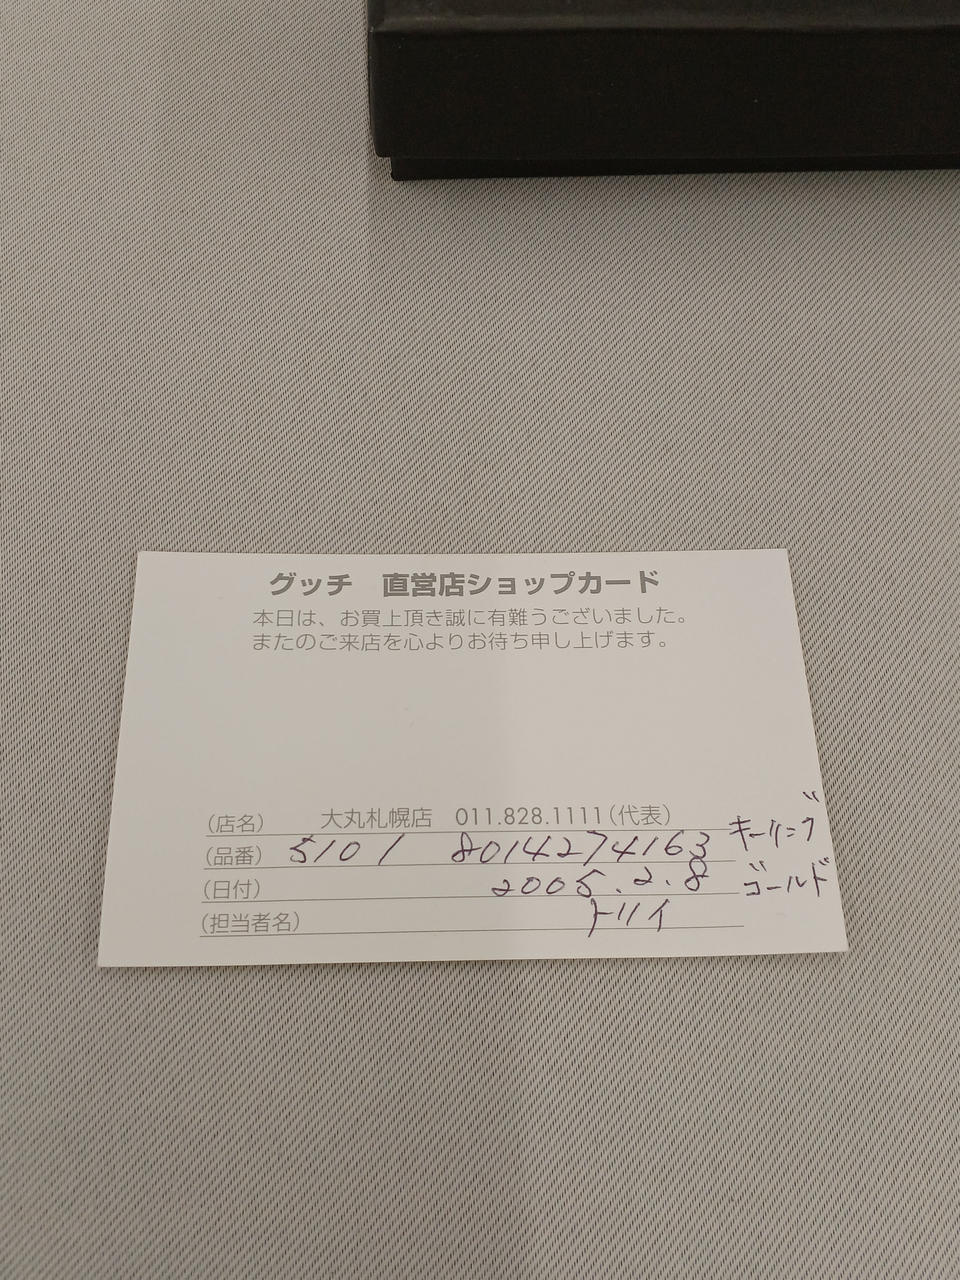 グッチ　直営店ショップカード
本日は、お買上頂き誠に有難うございました。
またのご来店を心よりお待ち申し上げます。
(店名)　大丸札幌店　011.828.1111(代表)
(品番) 5101　8014274163 キーリング
(日付) 2005.2.8 ゴールド
(担当者名) トリイ